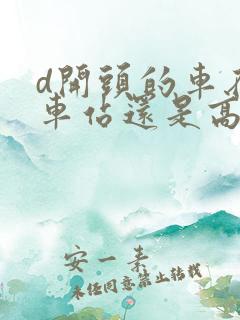 d開頭的車
車佔還是高
安一素
未經同意禁止轉載